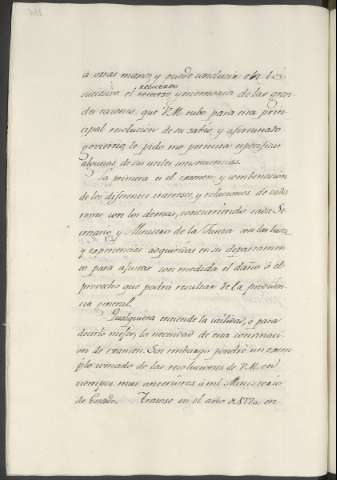 à otras manos, y puede conducir à lo
sucesivo el recuerdo y memoria de las gran-
des razones, que V.M. tubo para esta prin-
cipal resolucion de su sabio, y afortunado
govierno, le pido me permita especificar
algunas, de sus utiles consecuencias.
La primera es el examen, y combinacion
de los diferentes intereses, y relaciones de cada
ramo, con los demas, concurriendo cada Se-
cretario, y Ministro de la Junta con las luces,
y experiencias adquiridas en su departamen-
to para ajustar con medida el daño ó el
provecho que podrá resultar de la providen-
cia general.
Qualquiera entiende la utilidad, ó para
decirlo mejor, la necesidad de esta combinacion
de examen. Sin embargo pondré un exem-
plo tomado de las resoluciones de V.M. en
tiempos mas anteriores á mi Ministerio
de Estado. en el año de en